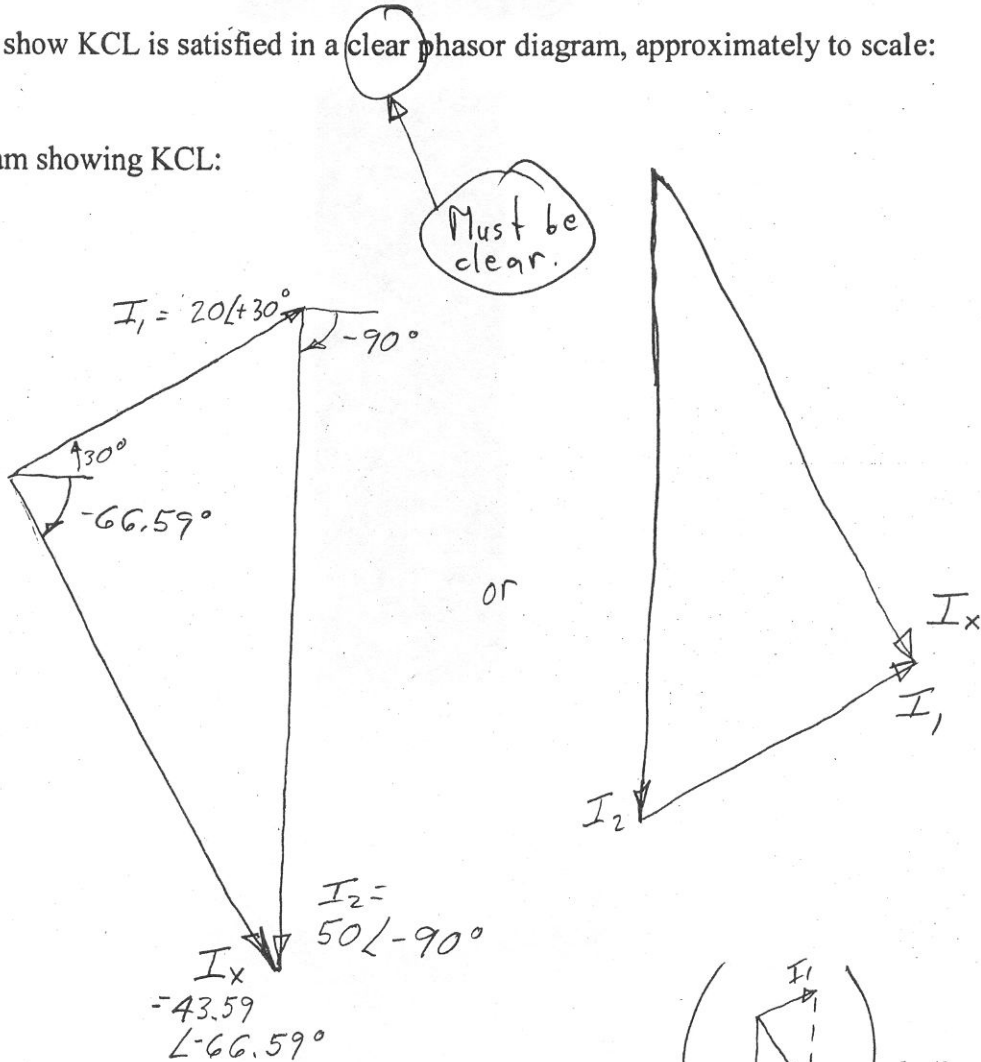 show KCL is satisfied in a clear phasor diagram, approximately to scale:
am showing KCL:
Must be
clear.
I₁ = 20∠+30°
-90°
30°
-66.59°
or
Iₓ
I₁
I₂
I₂ =
50∠-90°
Iₓ
=43.59
∠-66.59°
I₁